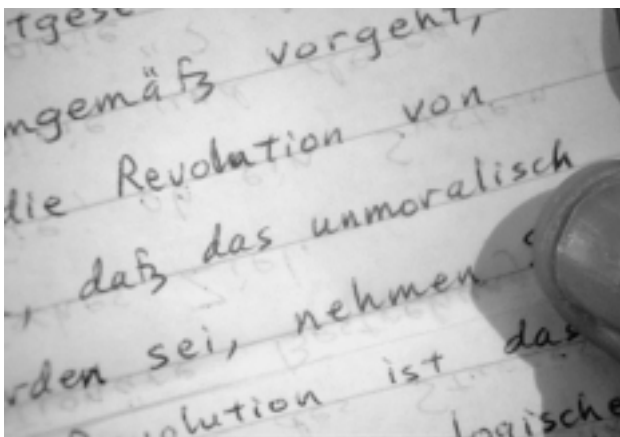 tgesc
mgemäß vorgeht,
die Revolution von
, daß das unmoralisch
rden sei, nehmen s
Revolution ist das
logische